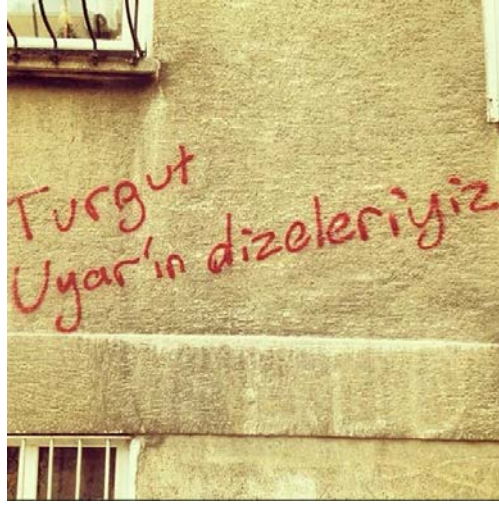 Turgut
Uyar'ın dizeleriyiz